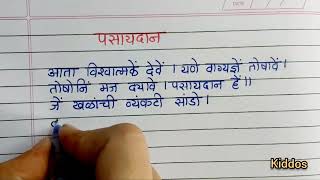 पसायदान
आता विश्वात्मकें देवें । येणे वाग्यज्ञें तोषावें।
तोषोनिं मज द्यावे । पसायदान हें।।
जें खळांची व्यंकटी सांडो ।
Kiddos